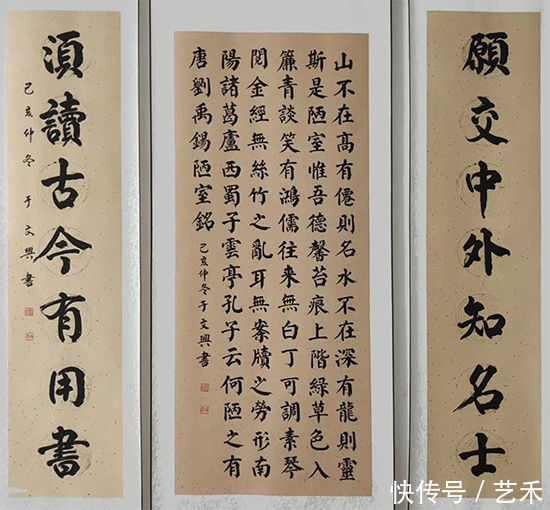 願交中外知名士
山不在高有僊則名水不在深有龍則靈
斯是陋室惟吾德馨苔痕上階綠草色入
簾青談笑有鴻儒往来無白丁可調素琴
閱金經無絲竹之亂耳無案牘之勞形南
陽諸葛廬西蜀子雲亭孔子云何陋之有
唐劉禹錫陋室銘 己亥仲冬于文興書
須讀古今有用書
己亥仲冬 于文興書
快传号 / 艺禾